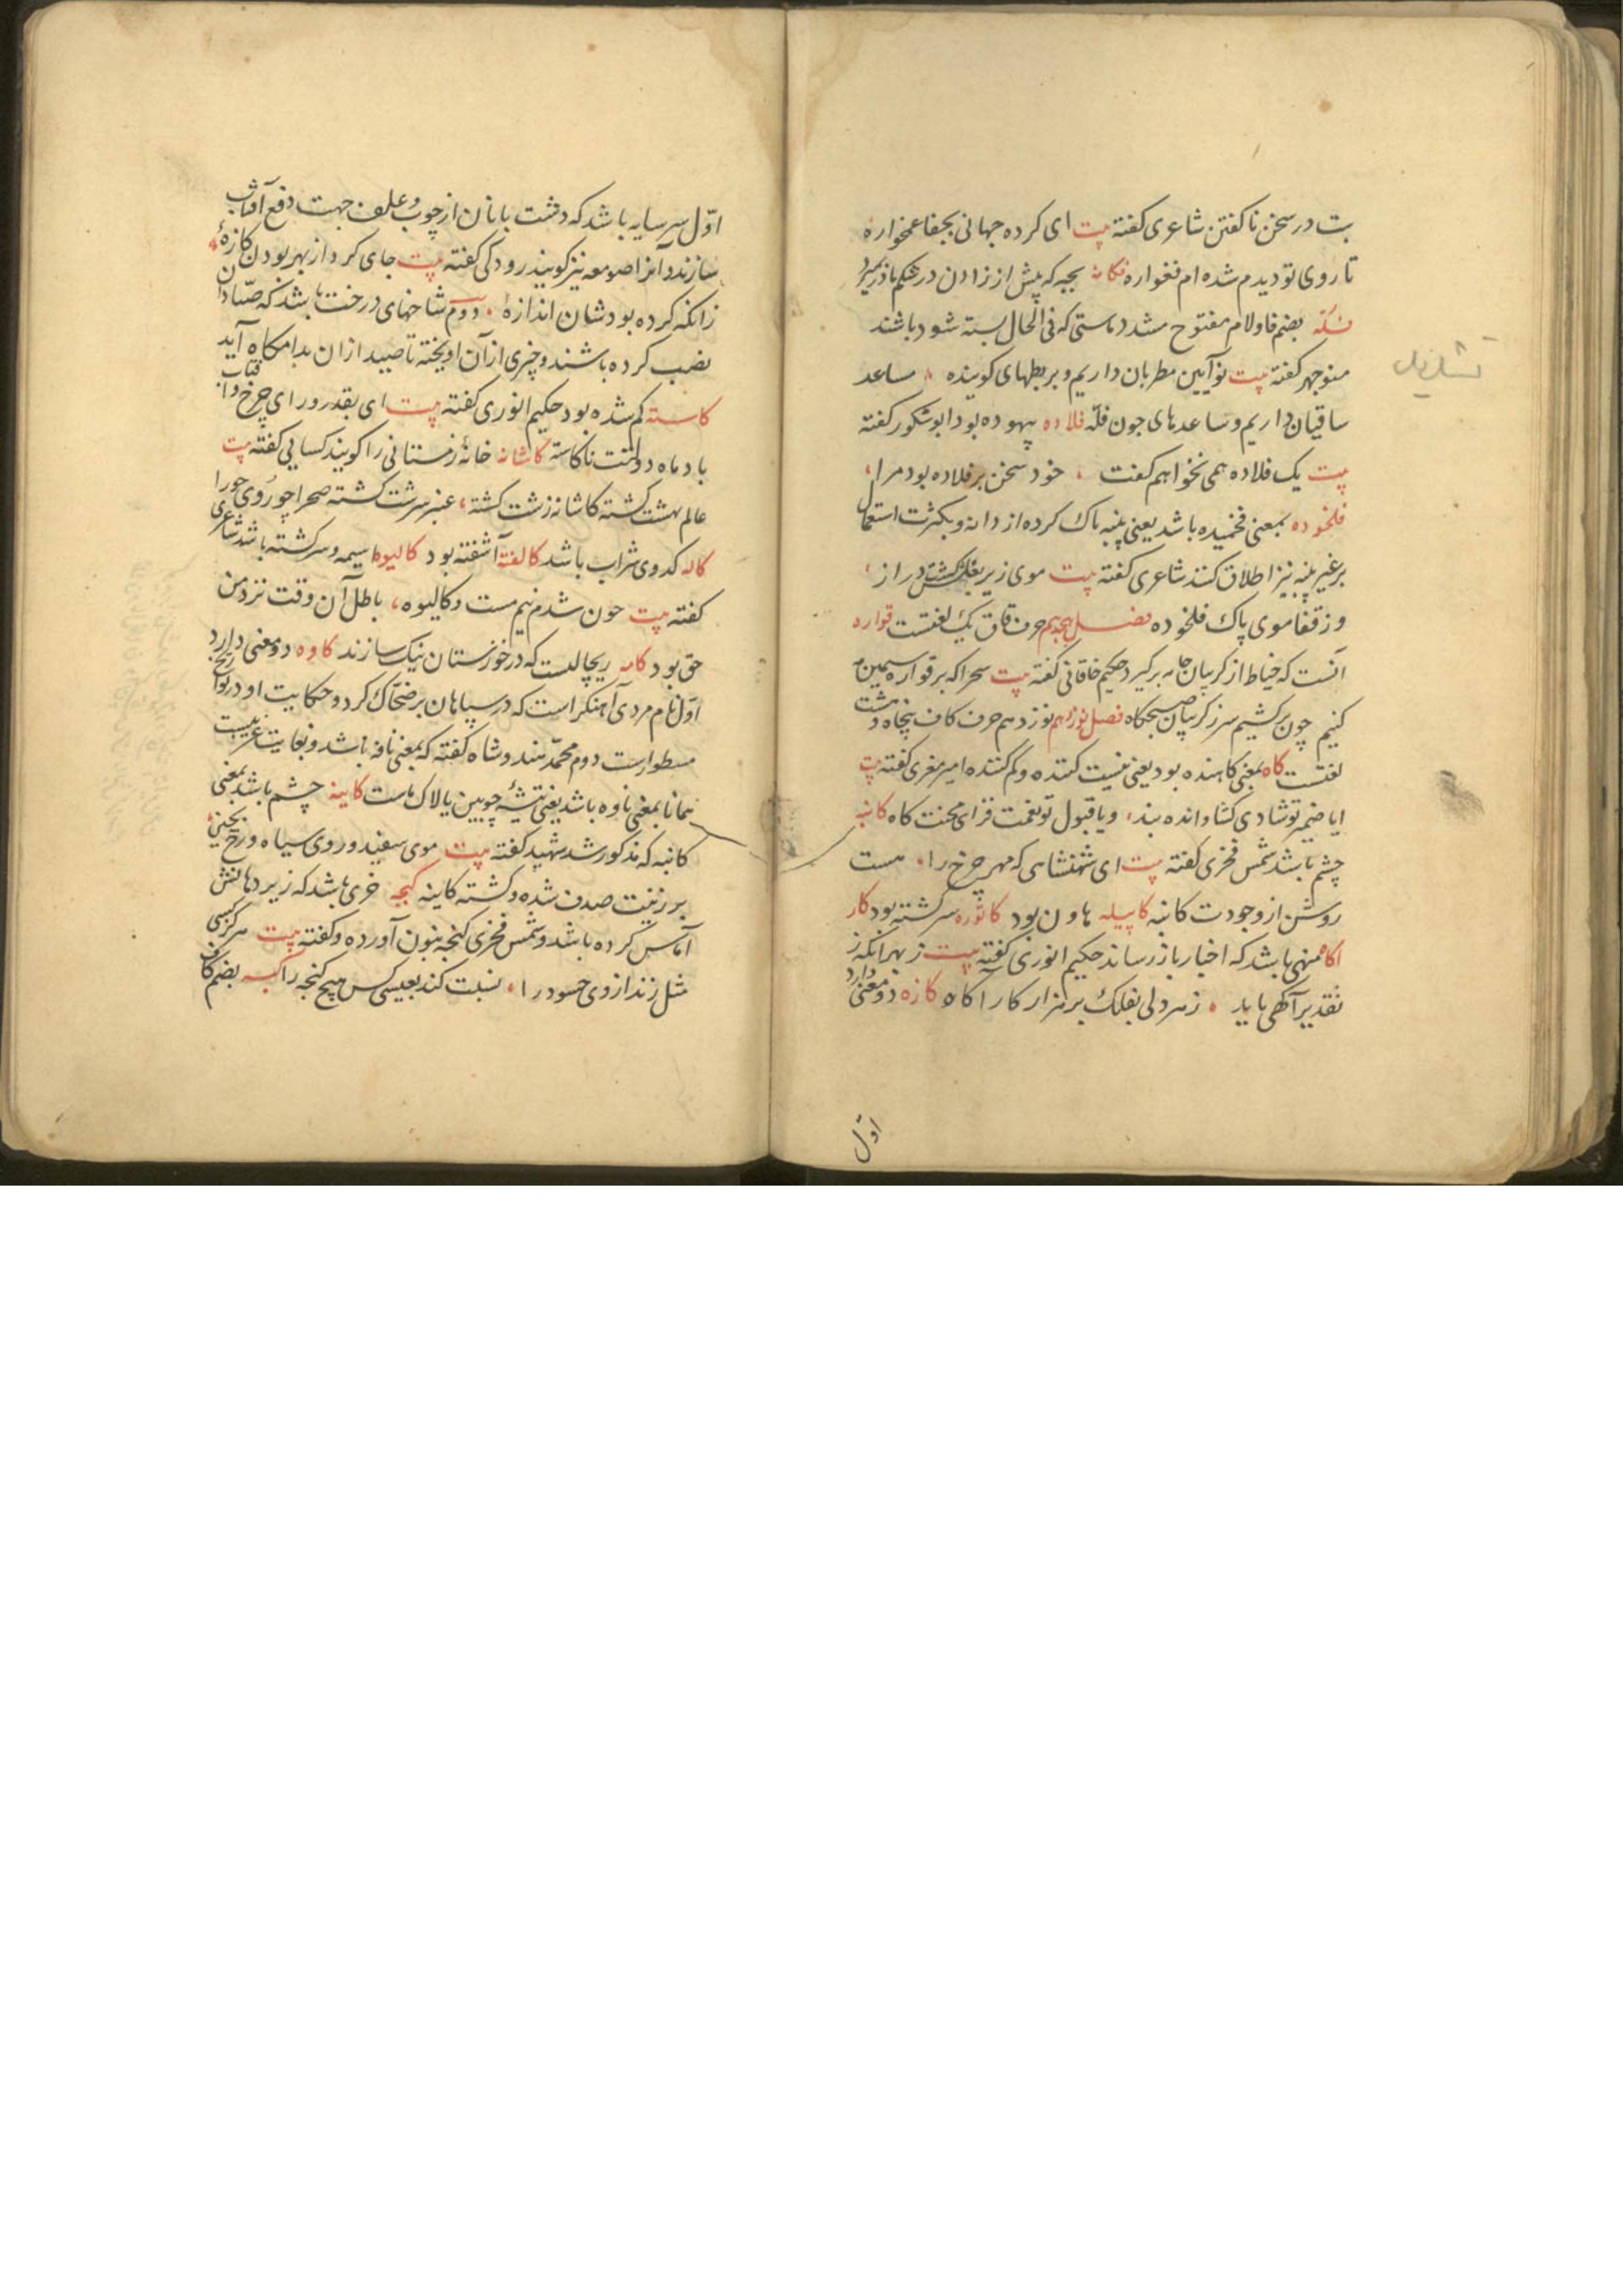 بت در سخن ناکفتن شاعری کفته بیت ای کرده جهانی بجفا غمخواره
تا روی تو دیدم شده ام نغواره فکانه بچه که پیش از زادن در شکم مادر بمیرد
فله بضم فا و لام مفتوح مشدد ماستی که فی الحال بسته شود باشند
منوچهر کفته بیت نوآیین مطربان داریم و بربطهای کوینده مساعد
ساقیان داریم و ساعدهای جون فله فلاده بیهوده بود ابو شکور کفته
بیت یک فلاده همی نخواهم کفت خود سخن بر فلاده بود مرا
فلخوده بمعنی فخمیده باشد یعنی پنبه پاک کرده از دانه و بکثرت استعمال
بر غیر پنبه نیز اطلاق کنند شاعری کفته بیت موی زیر بغلش کشته دراز
وز قفا موی پاک فلخوده فصل هجدهم حرف قاف یک لغتست قواره
آنست که خیاط از کریبان جامه برکیرد حکیم خاقانی کفته بیت سحرا که بر قواره سیمین
کنیم چون برکشیم سر ز کریبان صبحکاه فصل نوزدهم نوزدهم حرف کاف پنجاه و هشت
لغتست کاه بمعنی کاهنده بود یعنی نیست کننده و کم کننده امیر معزی کفته بیت
ایا ضمیر تو شادی کشا و انده بند ویا قبول تو نعمت فزای محنت کاه کانبه
چشم باشد شمس فخری کفته بیت ای شهنشاهی که مهر چرخ را هست
روشن از وجودت کانبه کابیله هاون بود کاتوره سرکشته بود کار
اکاه منهی باشد که اخبار باز رساند حکیم انوری کفته بیت ز بهر آنکه ز
تقدیر آکهی باید ز هر دلی بفلک بر هزار کار آکاه کازه دو معنی دارد
اول
اول سرسایه باشد که دشت بانان از چوب و علف جهت دفع آفتاب
سازند و آنرا صومعه نیز کویند رودکی کفته بیت جای کرد از بهر بودن کازه
زانکه کرده بودشان اندازه دوم شاخهای درخت باشد که صیادان
نصب کرده باشند و چیزی از آن آویخته تا صید ازان بدامکاه آید
کاسته کم شده بود حکیم انوری کفته بیت ای بقدر و رای چرخ و آفتاب
باد ماه دولتت ناکاسته کاشانه خانه زمستانی را کویند کسایی کفته بیت
عالم بهشت کشته کاشانه زشت کشته عنبر سرشت کشته صحرا چو روی حورا
کاله کدوی شراب باشد کالفته آشفته بود کالیوه آسیمه و سرکشته باشد شاعری
کفته بیت چون شدم نیم مست و کالیوه باطل آن وقت نزد من
حق بود کامه ریچالست که در خوزستان نیک سازند کاوه دو معنی دارد
اول نام مردی آهنکر است که در سپاهان بر ضحاک کرد و حکایت او در تواریخ
مسطور است دوم محمد هندوشاه کفته که بمعنی نافه باشد و بغایت غریبست
همانا بمعنی ناوه باشد یعنی تیشه چوبین یا لاک ماست کاینه چشم باشد بمعنی
کانبه که مذکور شد شهید کفته بیت موی سفید و روی سیاه و رخ بچین
بر زینت صدف شده و کشته کاینه کبجه خری باشد که زیر دهانش
آماس کرده باشد و شمس فخری کنجه بنون آورده و کفته بیت هر کسی
مثل زند از وی حسود را نسبت کند بعیسی کس هیچ کنجه را کبسه بضم کاف